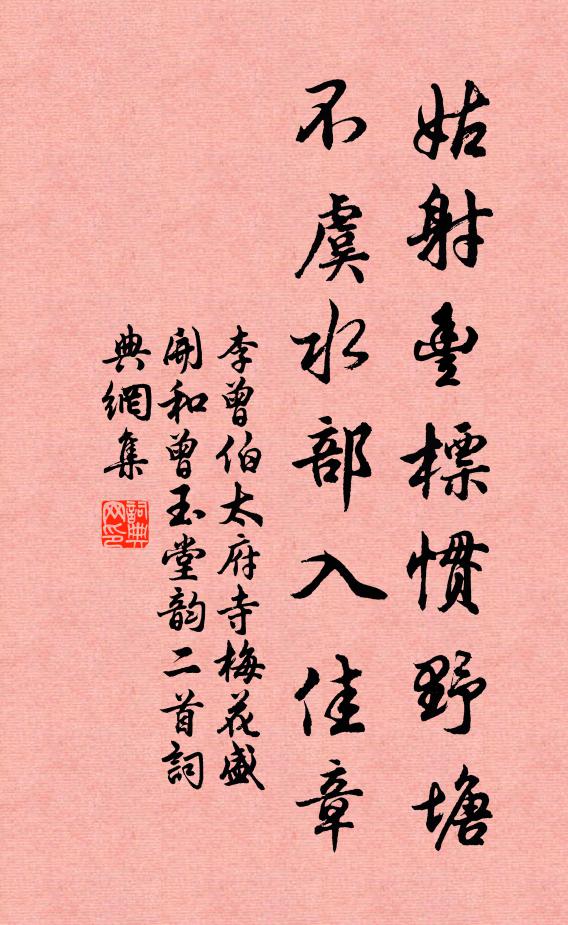 姑射豊標慣野塘
不虞水部入佳章
李曾伯太府寺梅花盛
開和曾玉堂韵二首詞
典網集
詞典
网印